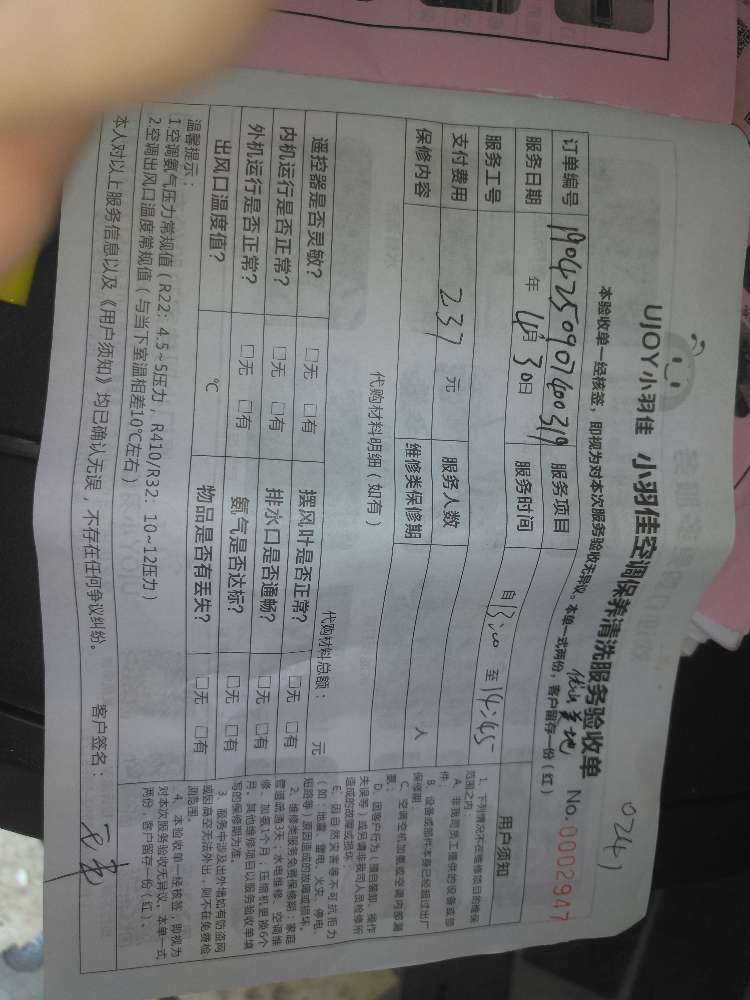 02471
UJOY小羽佳 小羽佳空调保养清洗服务验收单 No.00002947
本验收单一经核签，即视为对本次服务验收无异议。本单一式两份，客户留存一份（红）
订单编号 1904250907400319 服务项目
服务日期 年 4月30日 服务时间 自13:00 至14:45
服务工号
支付费用 237 元 服务人数 人
保修内容 维修类保修期
代购材料明细（如有）
代购材料总额： 元
遥控器是否灵敏？ □无 □有 摆风叶是否正常？ □无 □有
内机运行是否正常？ □无 □有 排水口是否通畅？ □无 □有
外机运行是否正常？ □无 □有 氨气是否达标？ □无 □有
出风口温度值？ ℃ 物品是否有丢失？ □无 □有
温馨提示：
1.空调氨气压力常规值（R22：4.5~5压力，R410/R32：10~12压力）
2.空调出风口温度常规值（与当下室温相差10℃左右）
本人对以上服务信息以及《用户须知》均已确认无误，不存在任何争议纠纷。 客户签名：
用户须知
1、下列情况不在维修项目的维保
范围之内：
A、非我司员工提供的设备或部
件；
B、设备或部件本身已经超过出厂
保修期；
C、空调空机加氨或空调内部漏
氨；
D、因客户行为（擅自装卸、操作
失误等）或另请非我司人员检修所
造成的故障或损坏；
E、因自然灾害等不可抗拒力
（如：地震、雷电、火灾、停电、
短路等）原因造成的故障或损坏。
2、维修类服务免费保修期：家庭
管道疏通3天；水电维修、空调维
修、加氨1个月；压缩机更换6个
月；其他维修项目以服务验收单填
写的保修期为准。
3、服务中涉及出外墙如有防盗网
或因高空无法外出，则不在免费检
测范围。
4、本验收单一经核签，即视为
对本次服务验收无异议。本单一式
两份，客户留存一份（红）。